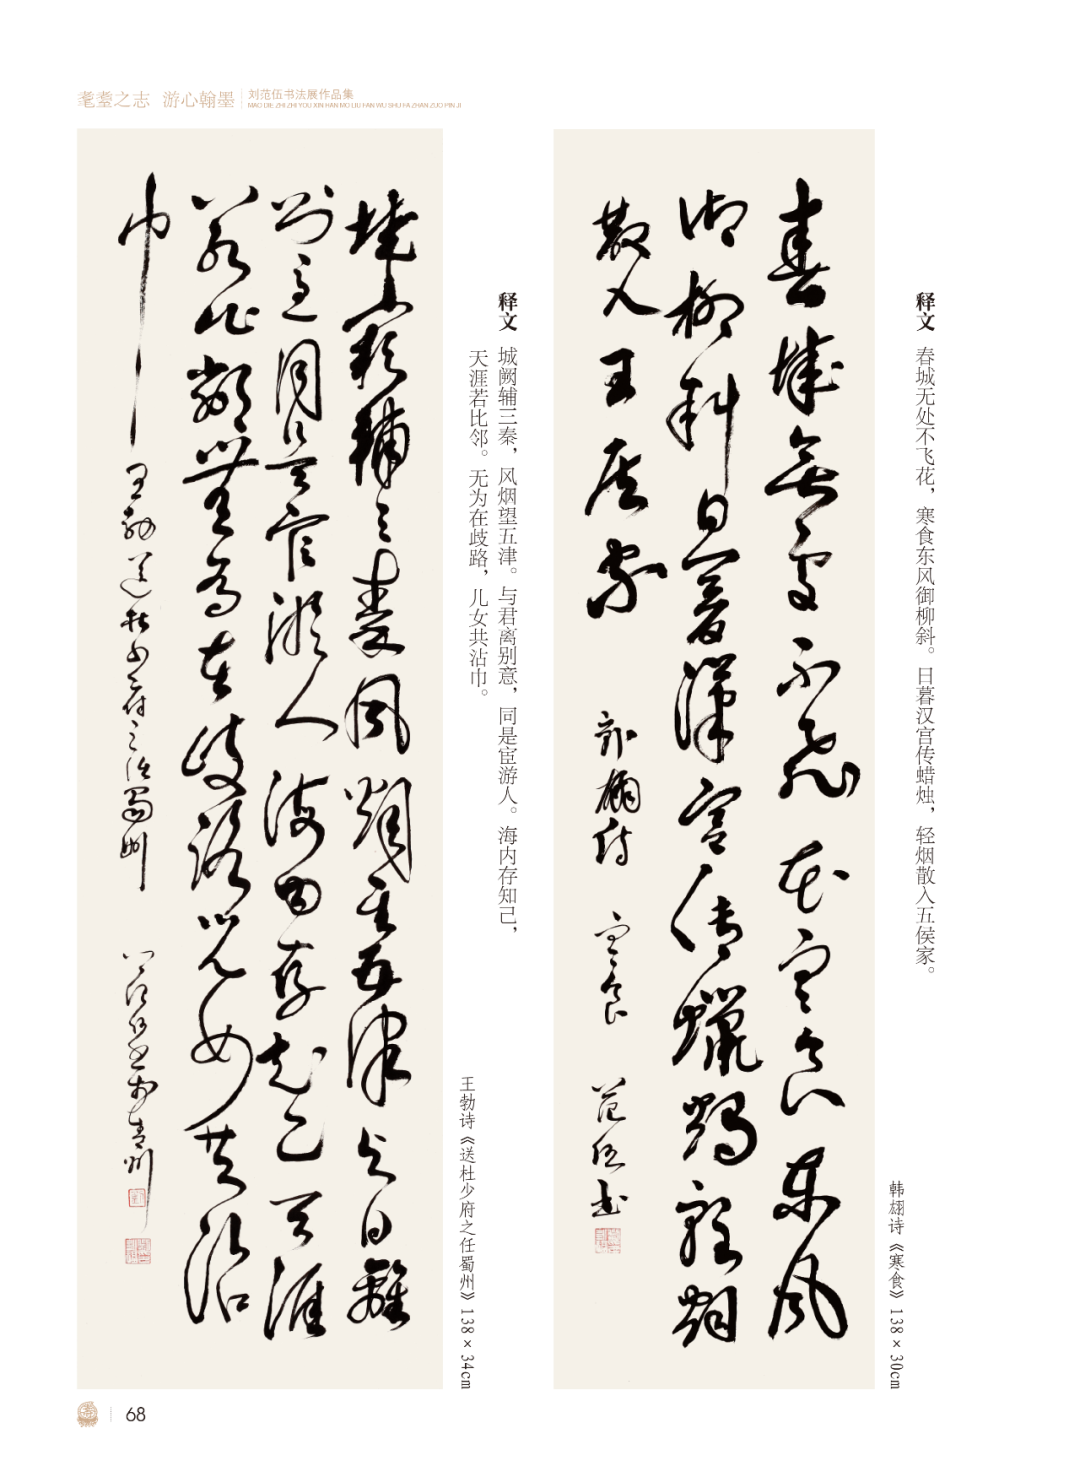 耄耋之志 游心翰墨
刘范伍书法展作品集
MAO DIE ZHI ZHI YOU XIN HAN MO LIU FAN WU SHU FA ZHAN ZUO PIN JI
春城無處不飛花寒食東風
御柳斜日暮漢宮傳蠟燭輕烟
散入五侯家
韩翃诗 寒食 范伍书
释文 春城无处不飞花，寒食东风御柳斜。日暮汉宫传蜡烛，轻烟散入五侯家。
韩翃诗《寒食》138×30cm
城闕輔三秦風烟望五津与君離
别意同是宦游人海内存知己天涯
若比鄰無为在歧路児女共沾
巾
王勃送杜少府之任蜀州
释文 城阙辅三秦，风烟望五津。与君离别意，同是宦游人。海内存知己，
天涯若比邻。无为在歧路，儿女共沾巾。
王勃诗《送杜少府之任蜀州》138×34cm
68